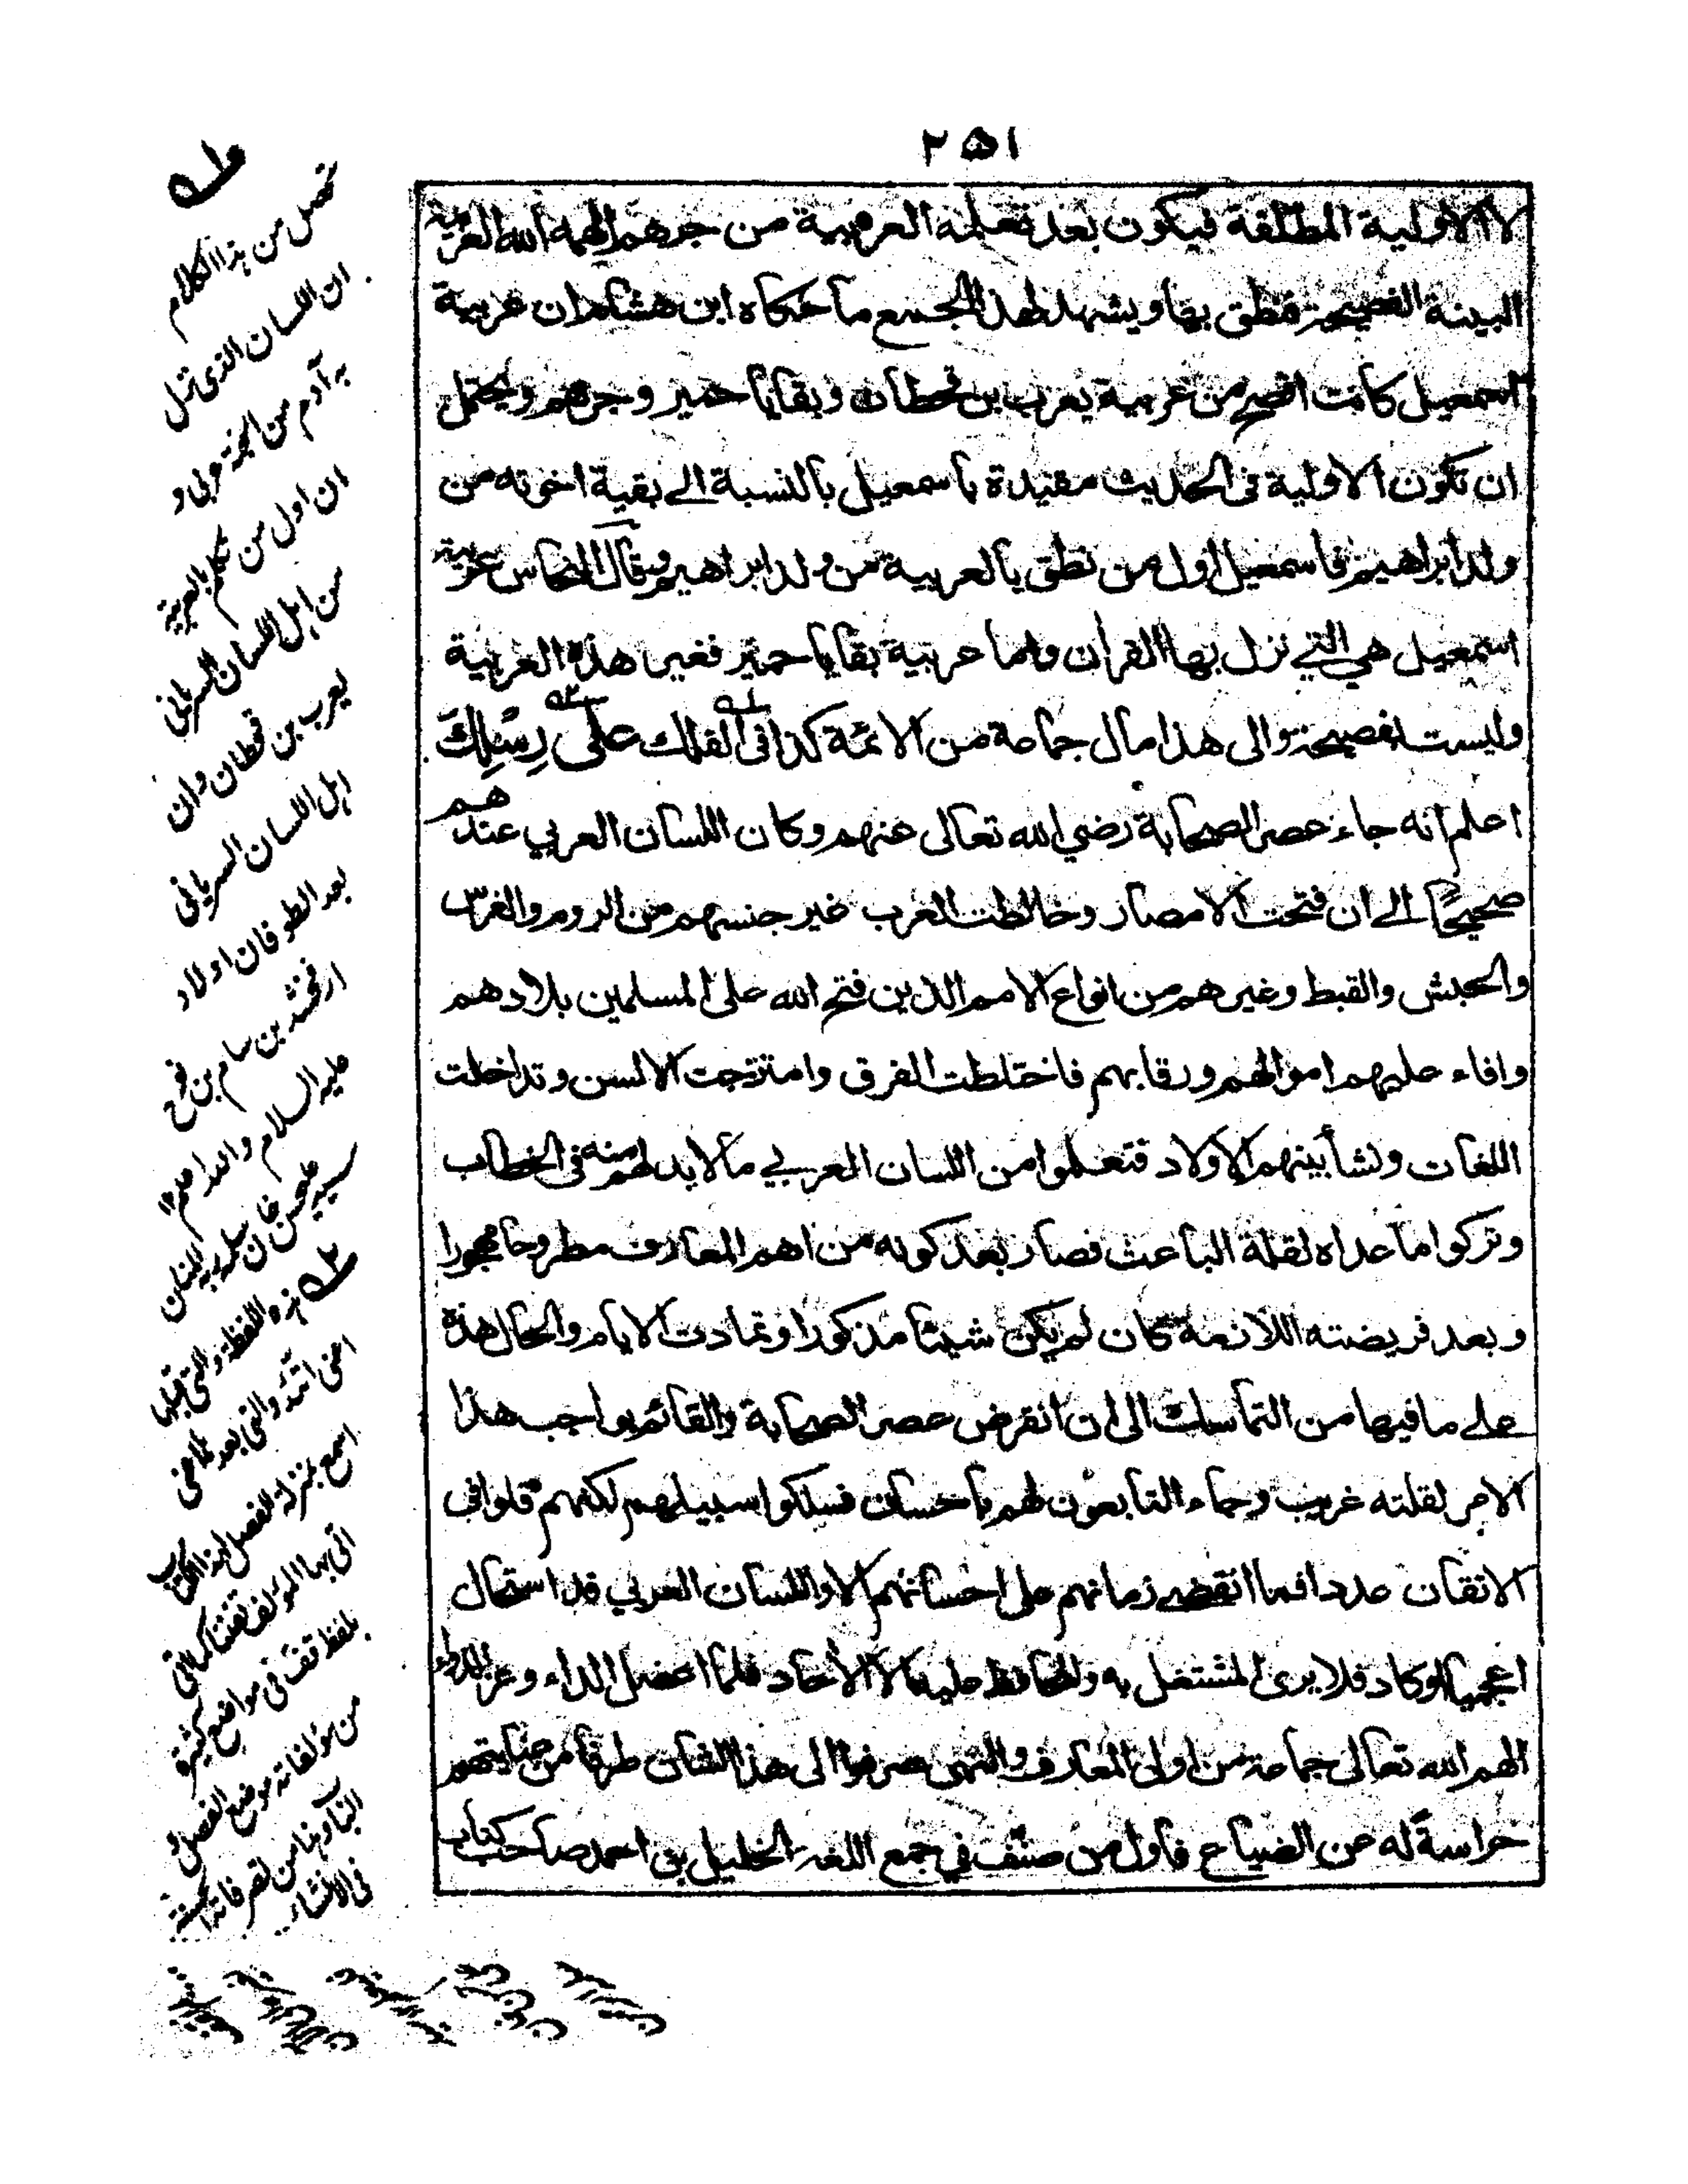 ٢٥١
لا الاولية المطلقة فيكون بعد تعلمه العربية من جرهم الهمه الله العربية
البينة الفصيحة فنطق بها ويشهد لهذا الجمع ما حكاه ابن هشام ان عربية
اسمعيل كانت افصح من عربية يعرب بن قحطان وبقايا حمير وجرهم ويحتمل
ان تكون الاولية فى الحديث مقيدة باسمعيل بالنسبة الے بقية اخوته من
ولد ابراهيم فاسمعيل اول من نطق بالعربية من ولد ابراهيم وقال النحاس عربية
اسمعيل هي التي نزل بها القرأن واما عربية بقايا حمير فغير هذه العربية
وليست بفصيحة والى هذا مال جماعة من الائمة كذا فى الفلك على رِسْلِكَ
اعلم انه جاء عصر الصحابة رضي الله تعالى عنهم وكان اللسان العربي عندهم
صحيحًا الے ان فتحت الامصار وخالطت العرب غير جنسهم من الروم والفرس
والحبش والقبط وغيرهم من انواع الامم الذين فتح الله على المسلمين بلادهم
وافاء عليهم اموالهم ورقابهم فاختلطت الفرق وامتزجت الالسن وتداخلت
اللغات ونشأ بينهم الاولاد فتعلموا من اللسان العربي ما لا بد لهم منه فى الخطاب
وتركوا ما عداه لقلة الباعث فصار بعد كونه من اهم المعارف مطروحا مهجورا
وبعد فريضته اللازمة كان لم يكن شيئا مذكورا وتمادت الايام والحال هذه
علے ما فيها من التماسك الى ان انقرض عصر الصحابة والقائم بواجب هذا
الامر لقلته غريب وجاء التابعون لهم باحسان فسلكوا سبيلهم لكنهم قلوا فى
الاتقان عددا فما انقضے زمانهم على احسانهم الا واللسان العربي قد استحال
اعجميا او كاد فلا يرى المشتغل به والمحافظ عليه الا الأحاد فلما اعضل الداء وعز الدواء
الهم الله تعالى جماعة من اولى المعارف والنهى صرفوا الى هذا الشان طرفا من عنايتهم
حراسةً له من الضياع فاول من صنّف في جمع اللغة الخليل بن احمد صاحب كتاب
تحصل من هذا الكلام
ان اللسان الذى نزل
به آدم من الجنة عربى و
ان اول من تكلم بالعربية
من اهل اللسان السريانى
يعرب بن قحطان وان
اهل اللسان السريانى
بعد الطوفان اولاد
ارفخشد بن سام بن نوح
عليه السلام والله اعلم
سيد على حسن خان سلمه ربه المنان
هذه اللفظة والتى قبلها
اعنى اتئد والتى بعدها اعنى
اسمع بمنزلة الفصل لهذا الكتاب
اتى بها المؤلف تفننا كما اتى
بلفظ قف فى مواضع كثيرة
من مؤلفاته موضع الفصل و
الباب وهذا من تصرفاته الحسنة
فى الانشاء